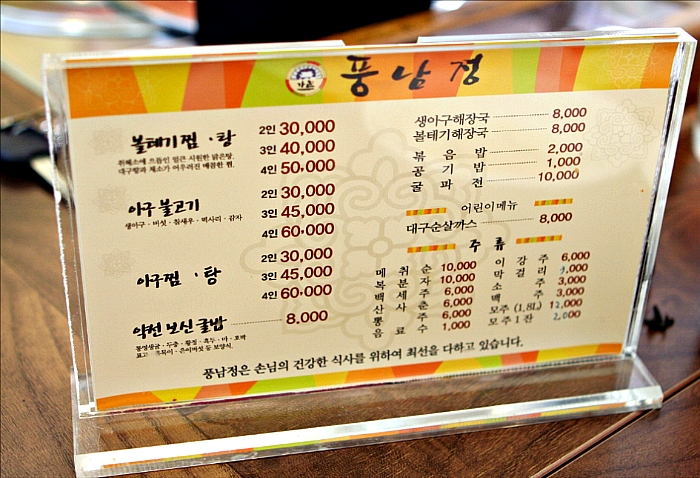 풍남정
볼테기찜 · 탕
취해소에 으뜸인 얼큰 시원한 맑은탕,
대구향과 채소가 어우러진 매콤한 찜.
2인 30,000
3인 40,000
4인 50,000
아구불고기
생아구 · 버섯 · 참새우 · 떡사리 · 감자
2인 30,000
3인 45,000
4인 60,000
아구찜 · 탕
2인 30,000
3인 45,000
4인 60,000
약전 보신 굴밥 8,000
통영생굴 · 두충 · 황정 · 흑두 · 마 · 호박
표고 · 은이버섯 등 보양식.
생아구해장국 8,000
볼테기해장국 8,000
볶음밥 2,000
공기밥 1,000
굴파전 10,000
어린이메뉴
대구순살까스 8,000
주류
매취순 10,000
복분자 10,000
백세주 6,000
산사춘 6,000
뽕주 6,000
음료수 1,000
이강주 6,000
막걸리
소주 3,000
맥주 3,000
모주 (1.8L) 12,000
모주 1잔 2,000
풍남정은 손님의 건강한 식사를 위하여 최선을 다하고 있습니다.